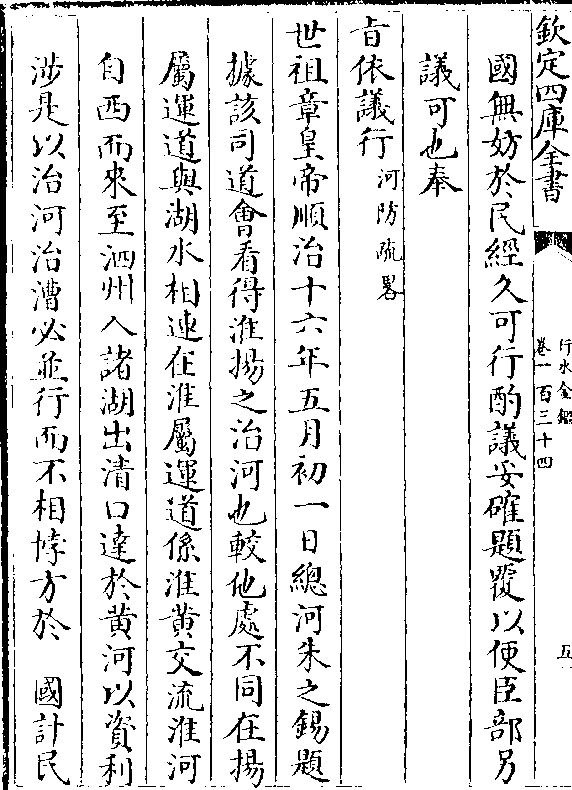 欽定四庫全書
行水金鑑
卷一百三十四
五
國無妨於民經久可行酌議妥確題覆以便臣部另
議可也奉
旨依議行河防疏畧
世祖章皇帝順治十六年五月初一日總河朱之錫題
據該司道會看得淮揚之治河也較他處不同在揚
屬運道與湖水相連在淮屬運道係淮黃交流淮河
自西而來至泗州入諸湖出清口達於黃河以資利
涉是以治河治漕必並行而不相悖方於 國計民